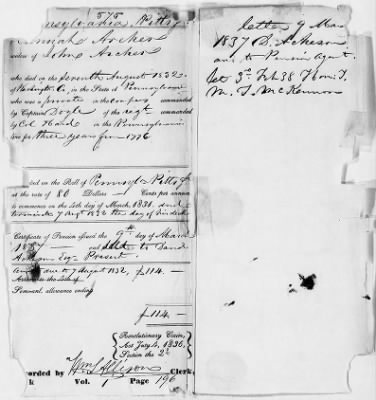 575
Pennsylvania, Pittsb
Hannah Archer
widow of John Archer
who died on the Seventh August 1832
of Washington Co, in the State of Pennsylvania
who was a private in the company commanded
by Captain Doyle of the regt commanded
by Col Hand in the Pennsylvania
line for three years from 1776
on the Roll of Pennsyla Pittsbg
at the rate of 80 Dollars Cents per annum
to commence on the 4th day of March, 1831. and
terminate 7 Augt 1832 the day of his death
Certificate of Pension issued the 9th day of March
1837 and sent to David
Acheson Esq Present
Arrears due to 7 August 1832, $114. —
Arrears to the 4th of
Semianl. allowance ending
$114. —
Revolutionary Claim,
Act July 4, 1836,
Section the 2d
Recorded by Wm S Allison Clerk,
k Vol. 1 Page 196
letter 9 Mar
1837 D. Acheson
and to Pension Agent.
let 3d Feb 38 T. M. T.
M. T. McKennon